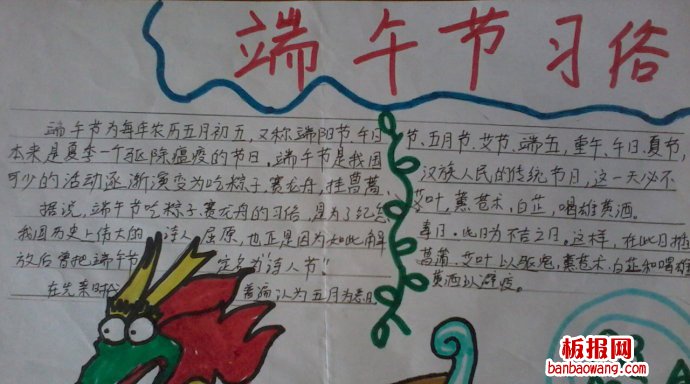 端午节习俗
端午节为每年农历五月初五,又称端阳节、午日
本来是夏季一个驱除瘟疫的节日,端午节是我国
可少的活动逐渐演变为吃粽子,赛龙舟,挂菖蒲、
据说,端午节吃粽子,赛龙舟的习俗,是为了纪念
我国历史上伟大的 诗人屈原,也正是因为如此解
放后曾把端午节 定名为“诗人节”
在先秦时 普遍认为五月为
节、五月节、艾节、端五,重午、午日、夏节,
汉族人民的传统节日,这一天必不
艾叶,薰苍术,白芷,喝雄黄酒。
毒月。此日为不吉之日。这样,在此日插
菖蒲、艾叶以驱鬼,薰苍术、白芷和喝雄
黄酒以避疫。
板报网
banbaowang.com